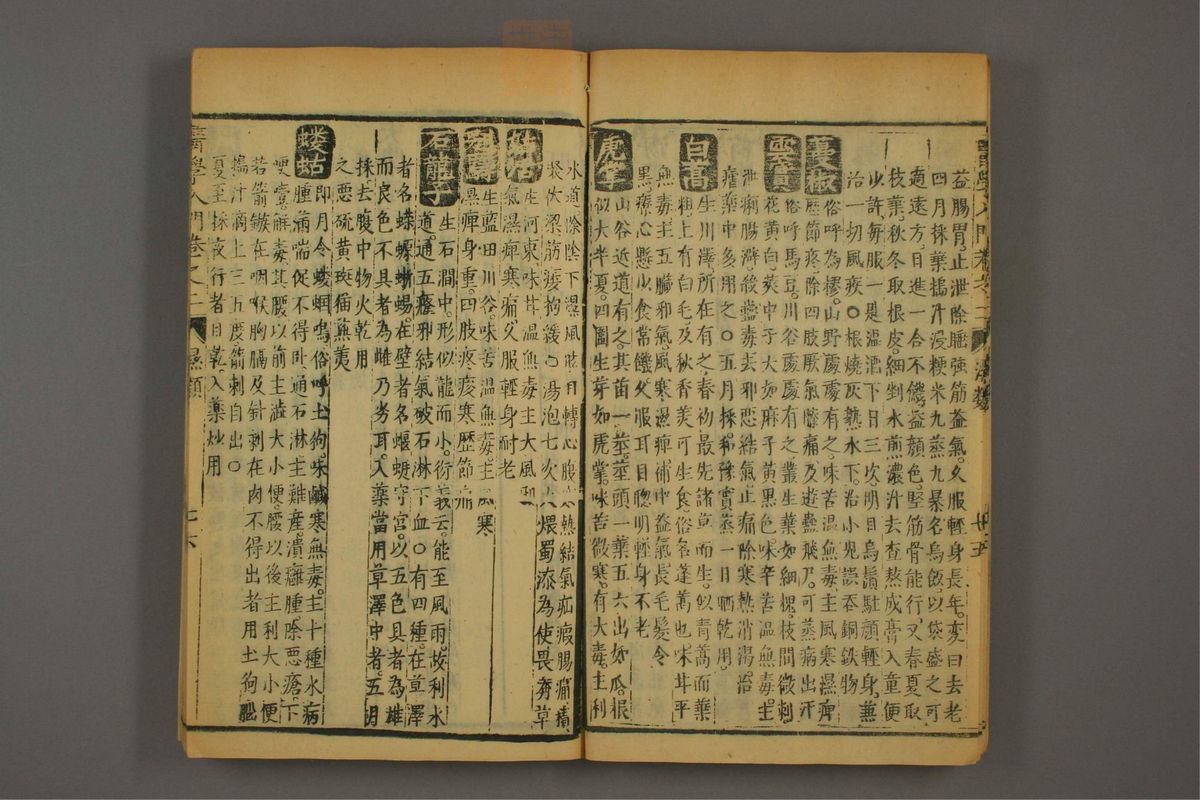 益腸胃止泄除睡強筋益氣久服輕身長年変白去老
四月採葉搗汁浸粳米九蒸九暴名烏飯以袋盛之可
適遠方日進一合不饑益顏色堅筋骨能行又春夏取
枝葉秋冬取根皮細剉水煎濃汁去查熬成膏入童便
少許每服一匙溫酒下日三次明目烏鬚駐顏輕身兼
治一切風疾○根燒灰熱水下治小兒誤吞銅鉄物
蔓椒
俗呼為樛山野處處有之味苦溫無毒主風寒濕痺
歷節疼除四肢厥氣膝痛及遊蠱飛尸可蒸病出汗
雲實
俗呼馬豆川谷處處有之叢生葉如細槐枝間微刺
花黃白莢中子大如麻子黃黑色味辛苦溫無毒主
泄痢腸澼殺蠱毒去邪惡結氣止痛除寒熱消渴治
瘧藥中多用之○五月採實蒸一日晒乾用
白蒿
生川澤所在有之春初最先諸草而生似青蒿而葉
粗上有白毛及秋香美可生食俗名蓬蒿也味甘平
無毒主五臟邪氣風寒濕痺補中益氣長毛髮令
黑療心懸少食常饑久服耳目聰明輕身不老
虎掌
山谷近道有之其苗一莖莖頭一葉五六出如瓜根
似大半夏四圍生芽如虎掌味苦微寒有大毒主利
水道除陰下濕風眩目轉心腹寒熱結氣疝瘕腸痛積
聚伏梁筋痿拘緩○湯泡七次火煨蜀漆為使畏莽草
生河東味甘溫無毒主大風
氣濕痺寒痛久服輕身耐老
生藍田川谷味苦溫無毒主風寒
濕痺身重四肢疼痠寒歷節痛
石龍子
生石澗中形似龍而小衍義云能至風雨故利水
道通五癃邪結氣破石淋下血○有四種在草澤
者名蠑螈蜥蜴在壁者名蝘蜓守宮以五色具者為雄
而良色不具者為雌乃劣耳入藥當用草澤中者五月
採去腹中物火乾用
之惡硫黃斑猫蕪荑
螻蛄
即月令螻蟈鳴俗呼土狗味鹹寒無毒主十種水病
腫滿喘促不得卧通石淋主難產潰癰腫除惡瘡下
哽噎解毒其腰以前主澁大小便腰以後主利大小便
若箭鏃在咽喉胸膈及針刺在肉不得出者用土狗腦
搗汁滴上三五度箭刺自出○
夏至採夜行者日乾入藥炒用
醫學入門卷之二
濕類
七六